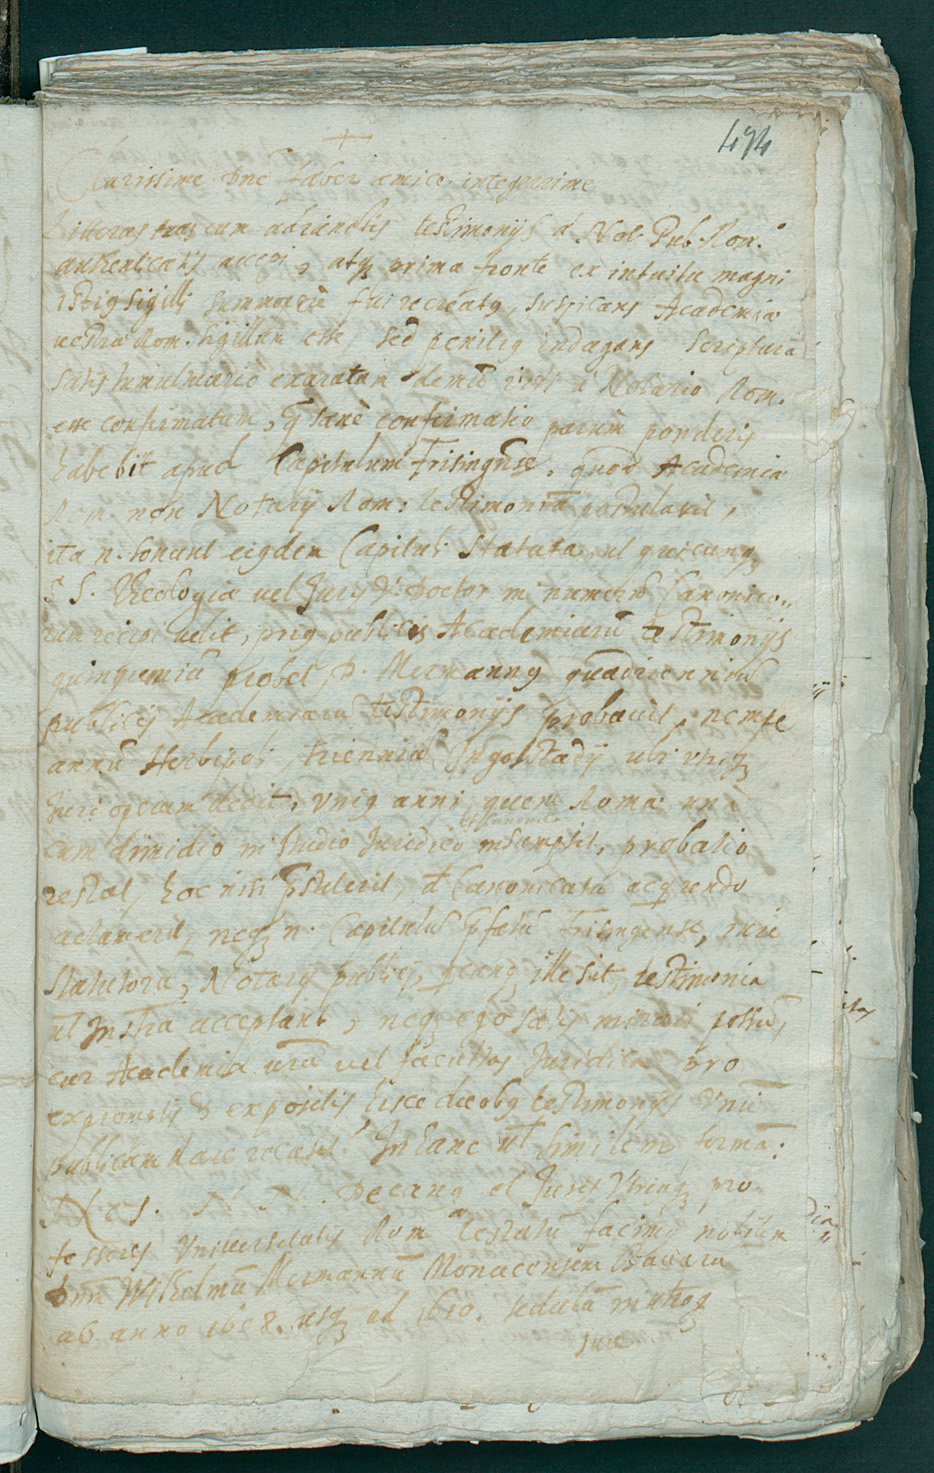 474
+
Clarissime Dne Faber amice integerrime
Litteras tuas cum adiunctis testimonijs a Not. Pub. Rom.
authenticatis accepi, atq prima fronte ex intuitu magni
sigilli fui recreatq, suspicans Academiae
vestrae Rom. sigillum esse, sed penitq indagans scripturã
satis tumultuario exaratam demũ à Notario Rom.
esse confirmatam, q sanè confirmatio parùm ponderis
habebit apud Capitulum Frisingense, quod Academiae
Rom. non Notarij Rom: testimoniũ postulavit,
ita n. sonant eiqdem Capituli Statuta, ut quicunq
S S. Theologiae vel Juris V. Doctor in numerũ Canonico,,
rum recipi velit, priq publicis Academiarũ testimonijs
quinqueniũ probet, D. Mermannq quadriennium
publicis Academiarũ testimonijs probavit, nempe
annũ Herbipoli, trienniũ Ingolstadij ubi
Juri operam dedit, uniq anni quem Romae unà
cum dimidio in studio Juridico insumpsit, probatio
restat, hoc nisi pstiterit, de Canonicatu acquirendo
actum erit, neq n. Capitulũ pfatũ Frisingense,
Statutorũ, Notarij publici, ille sit, testimonia
acceptant, neq ego satis mirari possũ,
cur Academia vra vel facultas Juridica pro
expositis, hisce duobq testimonijs unũ
publicum dare In hanc vel similem formã:
Nos. N. N. Decanq et Juris Utriusq pro-
fessores Universitatis Rom testatũ facimq nobilem
Dnm Wilhelmũ Mermannũ Monacensem Bavarum
ab anno 1608. usq ad 1610. sedulã in utroq
Jure